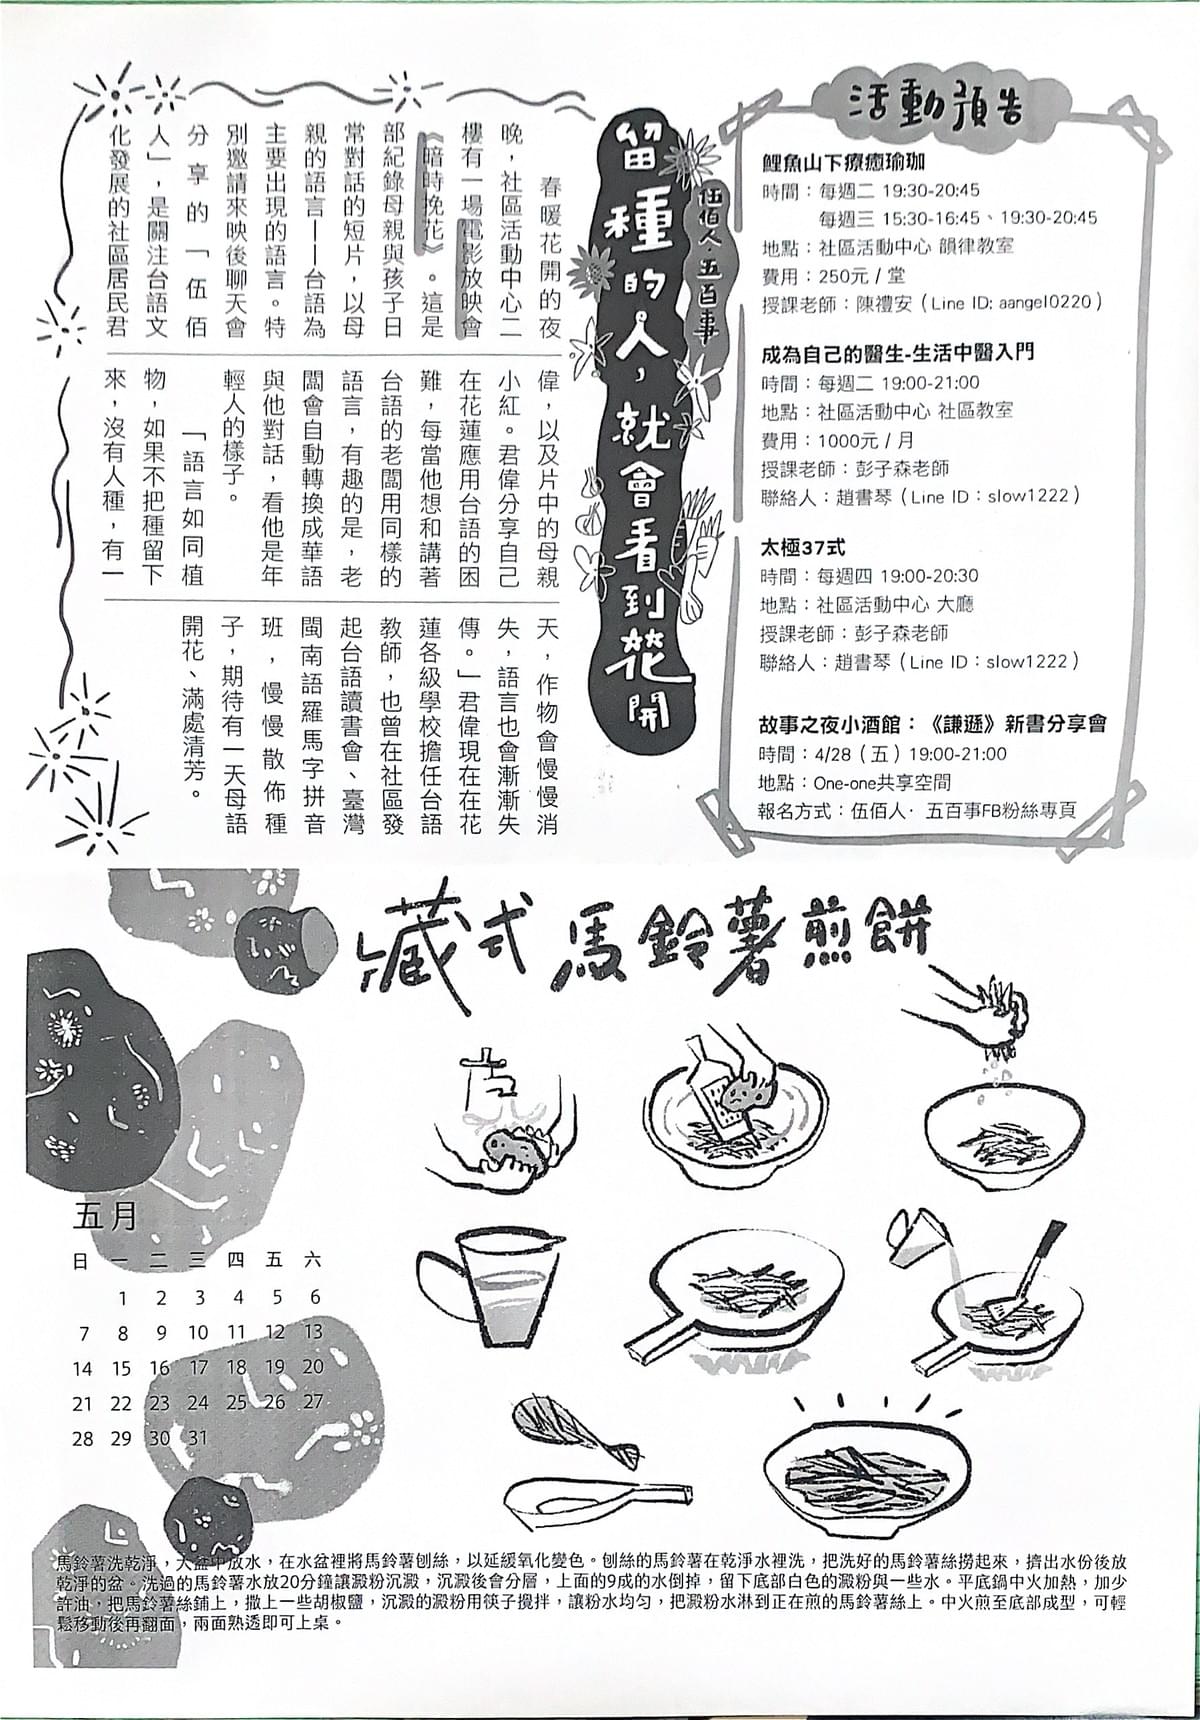 活動預告
鯉魚山下療癒瑜珈
時間：每週二 19:30-20:45
每週三 15:30-16:45、19:30-20:45
地點：社區活動中心 韻律教室
費用：250元 / 堂
授課老師：陳禮安（Line ID: aangel0220）
成為自己的醫生-生活中醫入門
時間：每週二 19:00-21:00
地點：社區活動中心 社區教室
費用：1000元 / 月
授課老師：彭子森老師
聯絡人：趙書琴（Line ID：slow1222）
太極37式
時間：每週四 19:00-20:30
地點：社區活動中心 大廳
授課老師：彭子森老師
聯絡人：趙書琴（Line ID：slow1222）
故事之夜小酒館：《謙遜》新書分享會
時間：4/28（五）19:00-21:00
地點：One-one共享空間
報名方式：伍佰人· 五百事FB粉絲專頁
伍佰人·五百事
留種的人，就會看到花開
春暖花開的夜
晚，社區活動中心二
樓有一場電影放映會
《暗時挽花》。這是
部紀錄母親與孩子日
常對話的短片，以母
親的語言——台語為
主要出現的語言。特
別邀請來映後聊天會
分享的「伍佰
人」，是關注台語文
化發展的社區居民君
偉，以及片中的母親
小紅。君偉分享自己
在花蓮應用台語的困
難，每當他想和講著
台語的老闆用同樣的
語言，有趣的是，老
闆會自動轉換成華語
與他對話，看他是年
輕人的樣子。
「語言如同植
物，如果不把種留下
來，沒有人種，有一
天，作物會慢慢消
失，語言也會漸漸失
傳。」君偉現在在花
蓮各級學校擔任台語
教師，也曾在社區發
起台語讀書會、臺灣
閩南語羅馬字拼音
班，慢慢散佈種
子，期待有一天母語
開花、滿處清芳。
藏式馬鈴薯煎餅
五月
日 一 二 三 四 五 六
1 2 3 4 5 6
7 8 9 10 11 12 13
14 15 16 17 18 19 20
21 22 23 24 25 26 27
28 29 30 31
馬鈴薯洗乾淨，大盆中放水，在水盆裡將馬鈴薯刨絲，以延緩氧化變色。刨絲的馬鈴薯在乾淨水裡洗，把洗好的馬鈴薯絲撈起來，擠出水份後放
乾淨的盆。洗過的馬鈴薯水放20分鐘讓澱粉沉澱，沉澱後會分層，上面的9成的水倒掉，留下底部白色的澱粉與一些水。平底鍋中火加熱，加少
許油，把馬鈴薯絲鋪上，撒上一些胡椒鹽，沉澱的澱粉用筷子攪拌，讓粉水均勻，把澱粉水淋到正在煎的馬鈴薯絲上。中火煎至底部成型，可輕
鬆移動後再翻面，兩面熟透即可上桌。